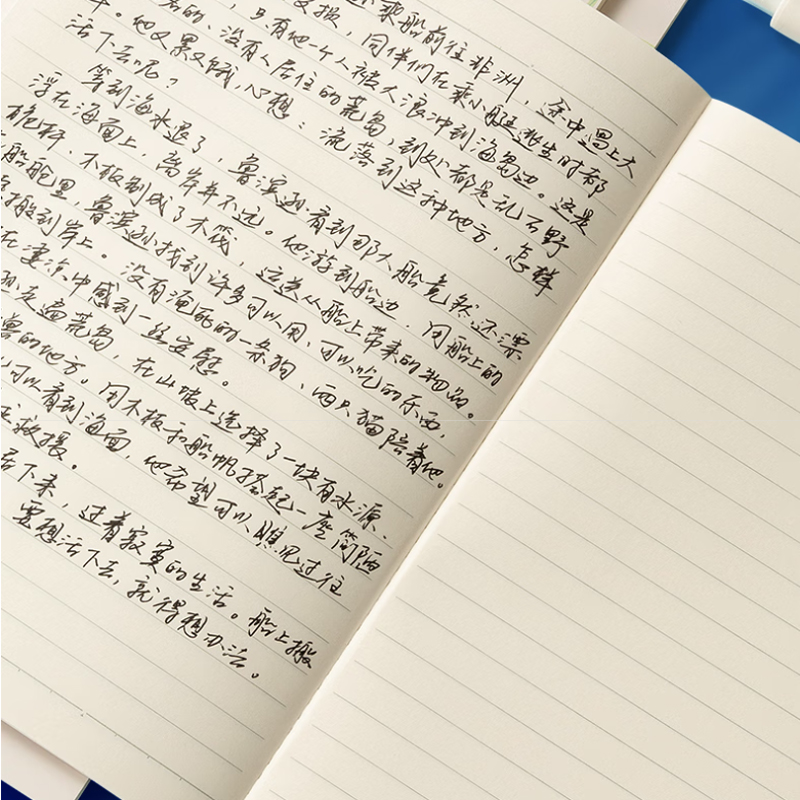 乘船前往非洲，途中遇上大
，同伴们在乘小艇逃生时都
，只有他一个人被大浪冲到海岛边。这是
名的、没有人居住的荒岛，到处都是乱石野
。他又累又饿，心想：流落到这种地方，怎样
活下去呢？
等到海水退了，鲁滨孙看到那大船竟然还漂
浮在海面上，离岸并不远。他游到船边，用船上的
桅杆、木板制成了木筏，运送从船上带来的物品。
船舱里，鲁滨孙找到许多可以用、可以吃的东西，
搬到岸上。没有淹死的一条狗、两只猫陪着他。
在凄凉中感到一丝安慰。
走遍荒岛，在山坡上选择了一块有水源、
兽的地方。用木板和船帆搭起一座简陋
可以看到海面，他希望可以瞧见过往
救援。
居下来，过着寂寞的生活。船上搬
要想活下去，就得想办法。